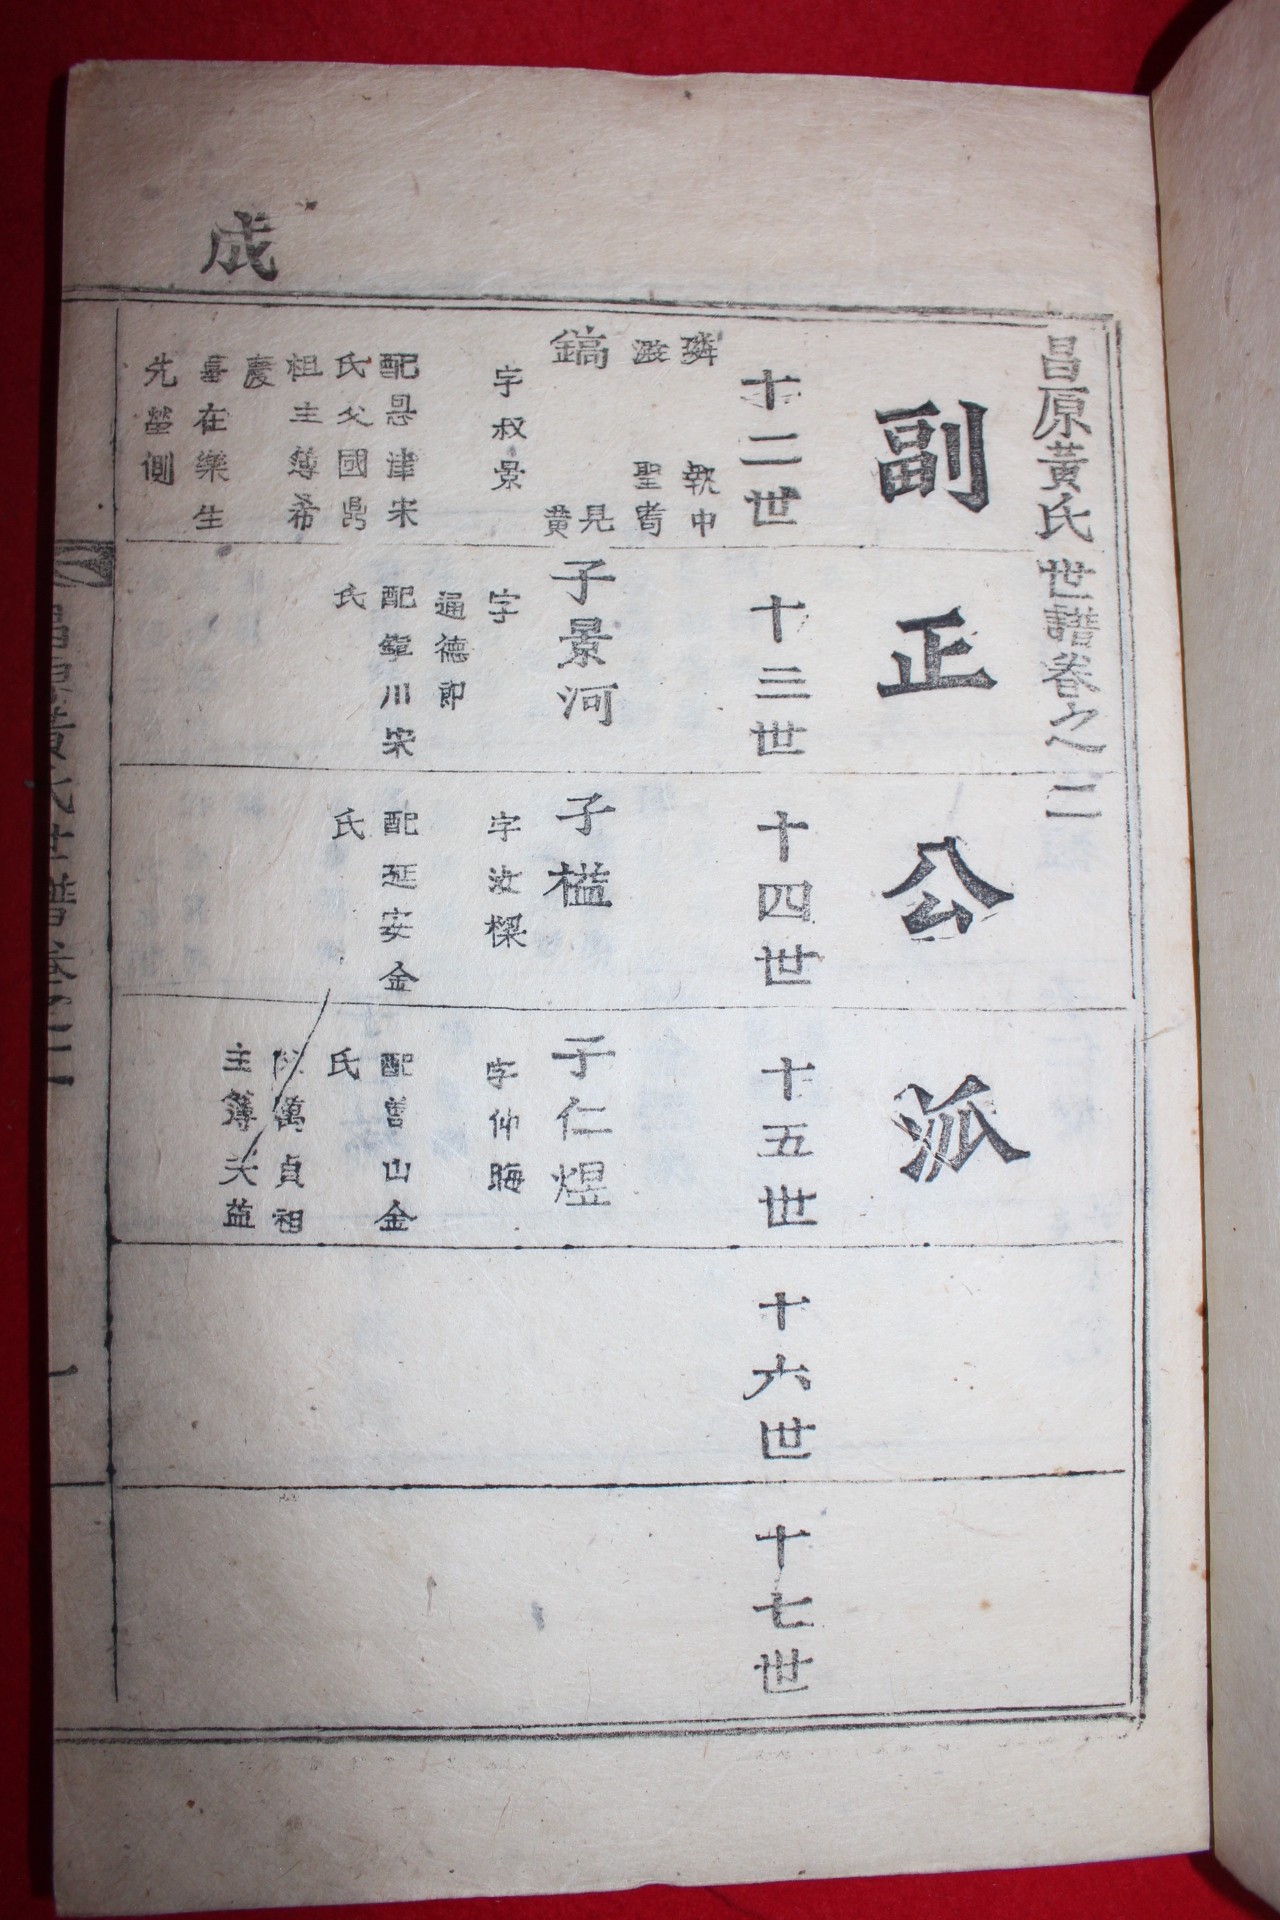 成
昌原黃氏世譜卷之二
副正公派
十二世
璘
執中
滋
聖耉
鎬
見黃
字叔景
配恩津宋
氏父國鼎
祖主簿希
慶
墓在樂生
先塋側
十三世
子景河
字
通德郎
配鎭川宋
氏
十四世
子檻
字汝樑
配延安金
氏
十五世
子仁煜
字仲晦
配善山金
氏
萬貞祖
主簿天益
十六世
十七世
昌原黃氏世譜卷之二
一